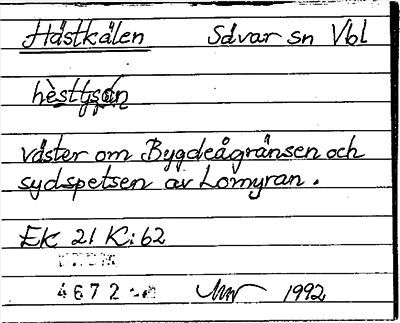 Hästkälen Sävar sn Vbl
väster om Bygdeågränsen och
sydspetsen av Lomyran.
Ek 21 K:62
4672 1992